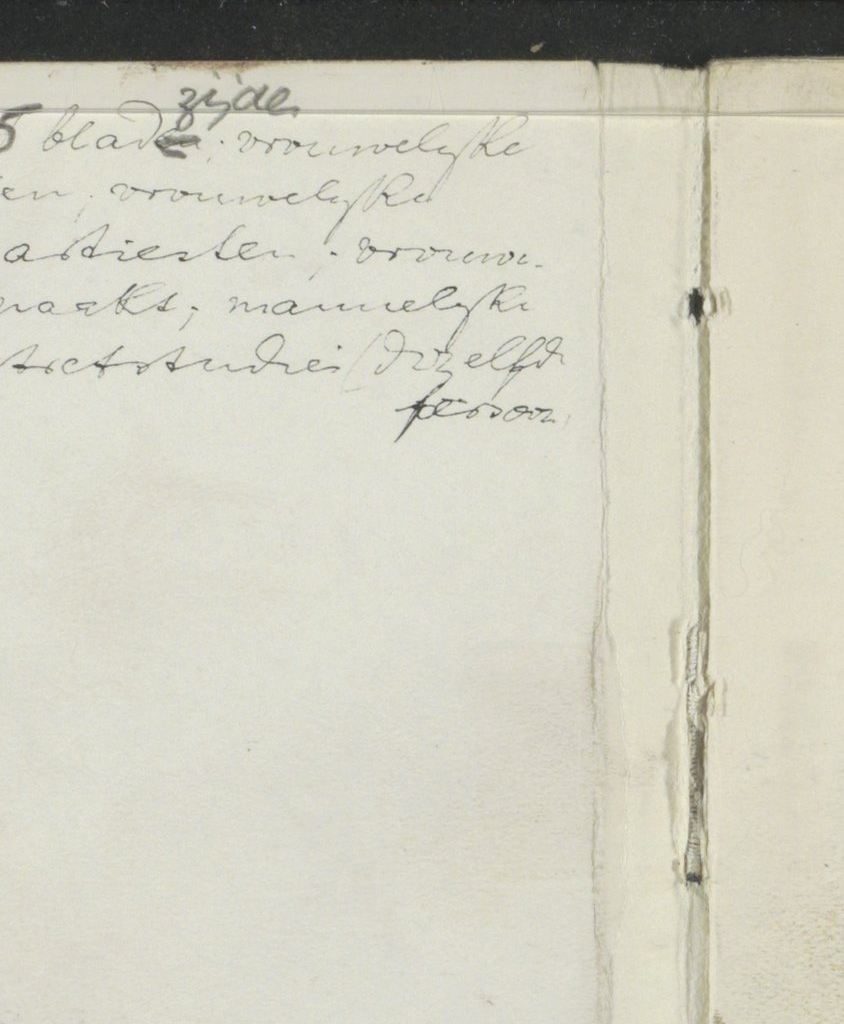 zijde
5 blade; vrouwelijke
en, vrouwelijke
artiesten; vrouwe-
naakt; mannelijke
tretstudies (dezelfde
persoon